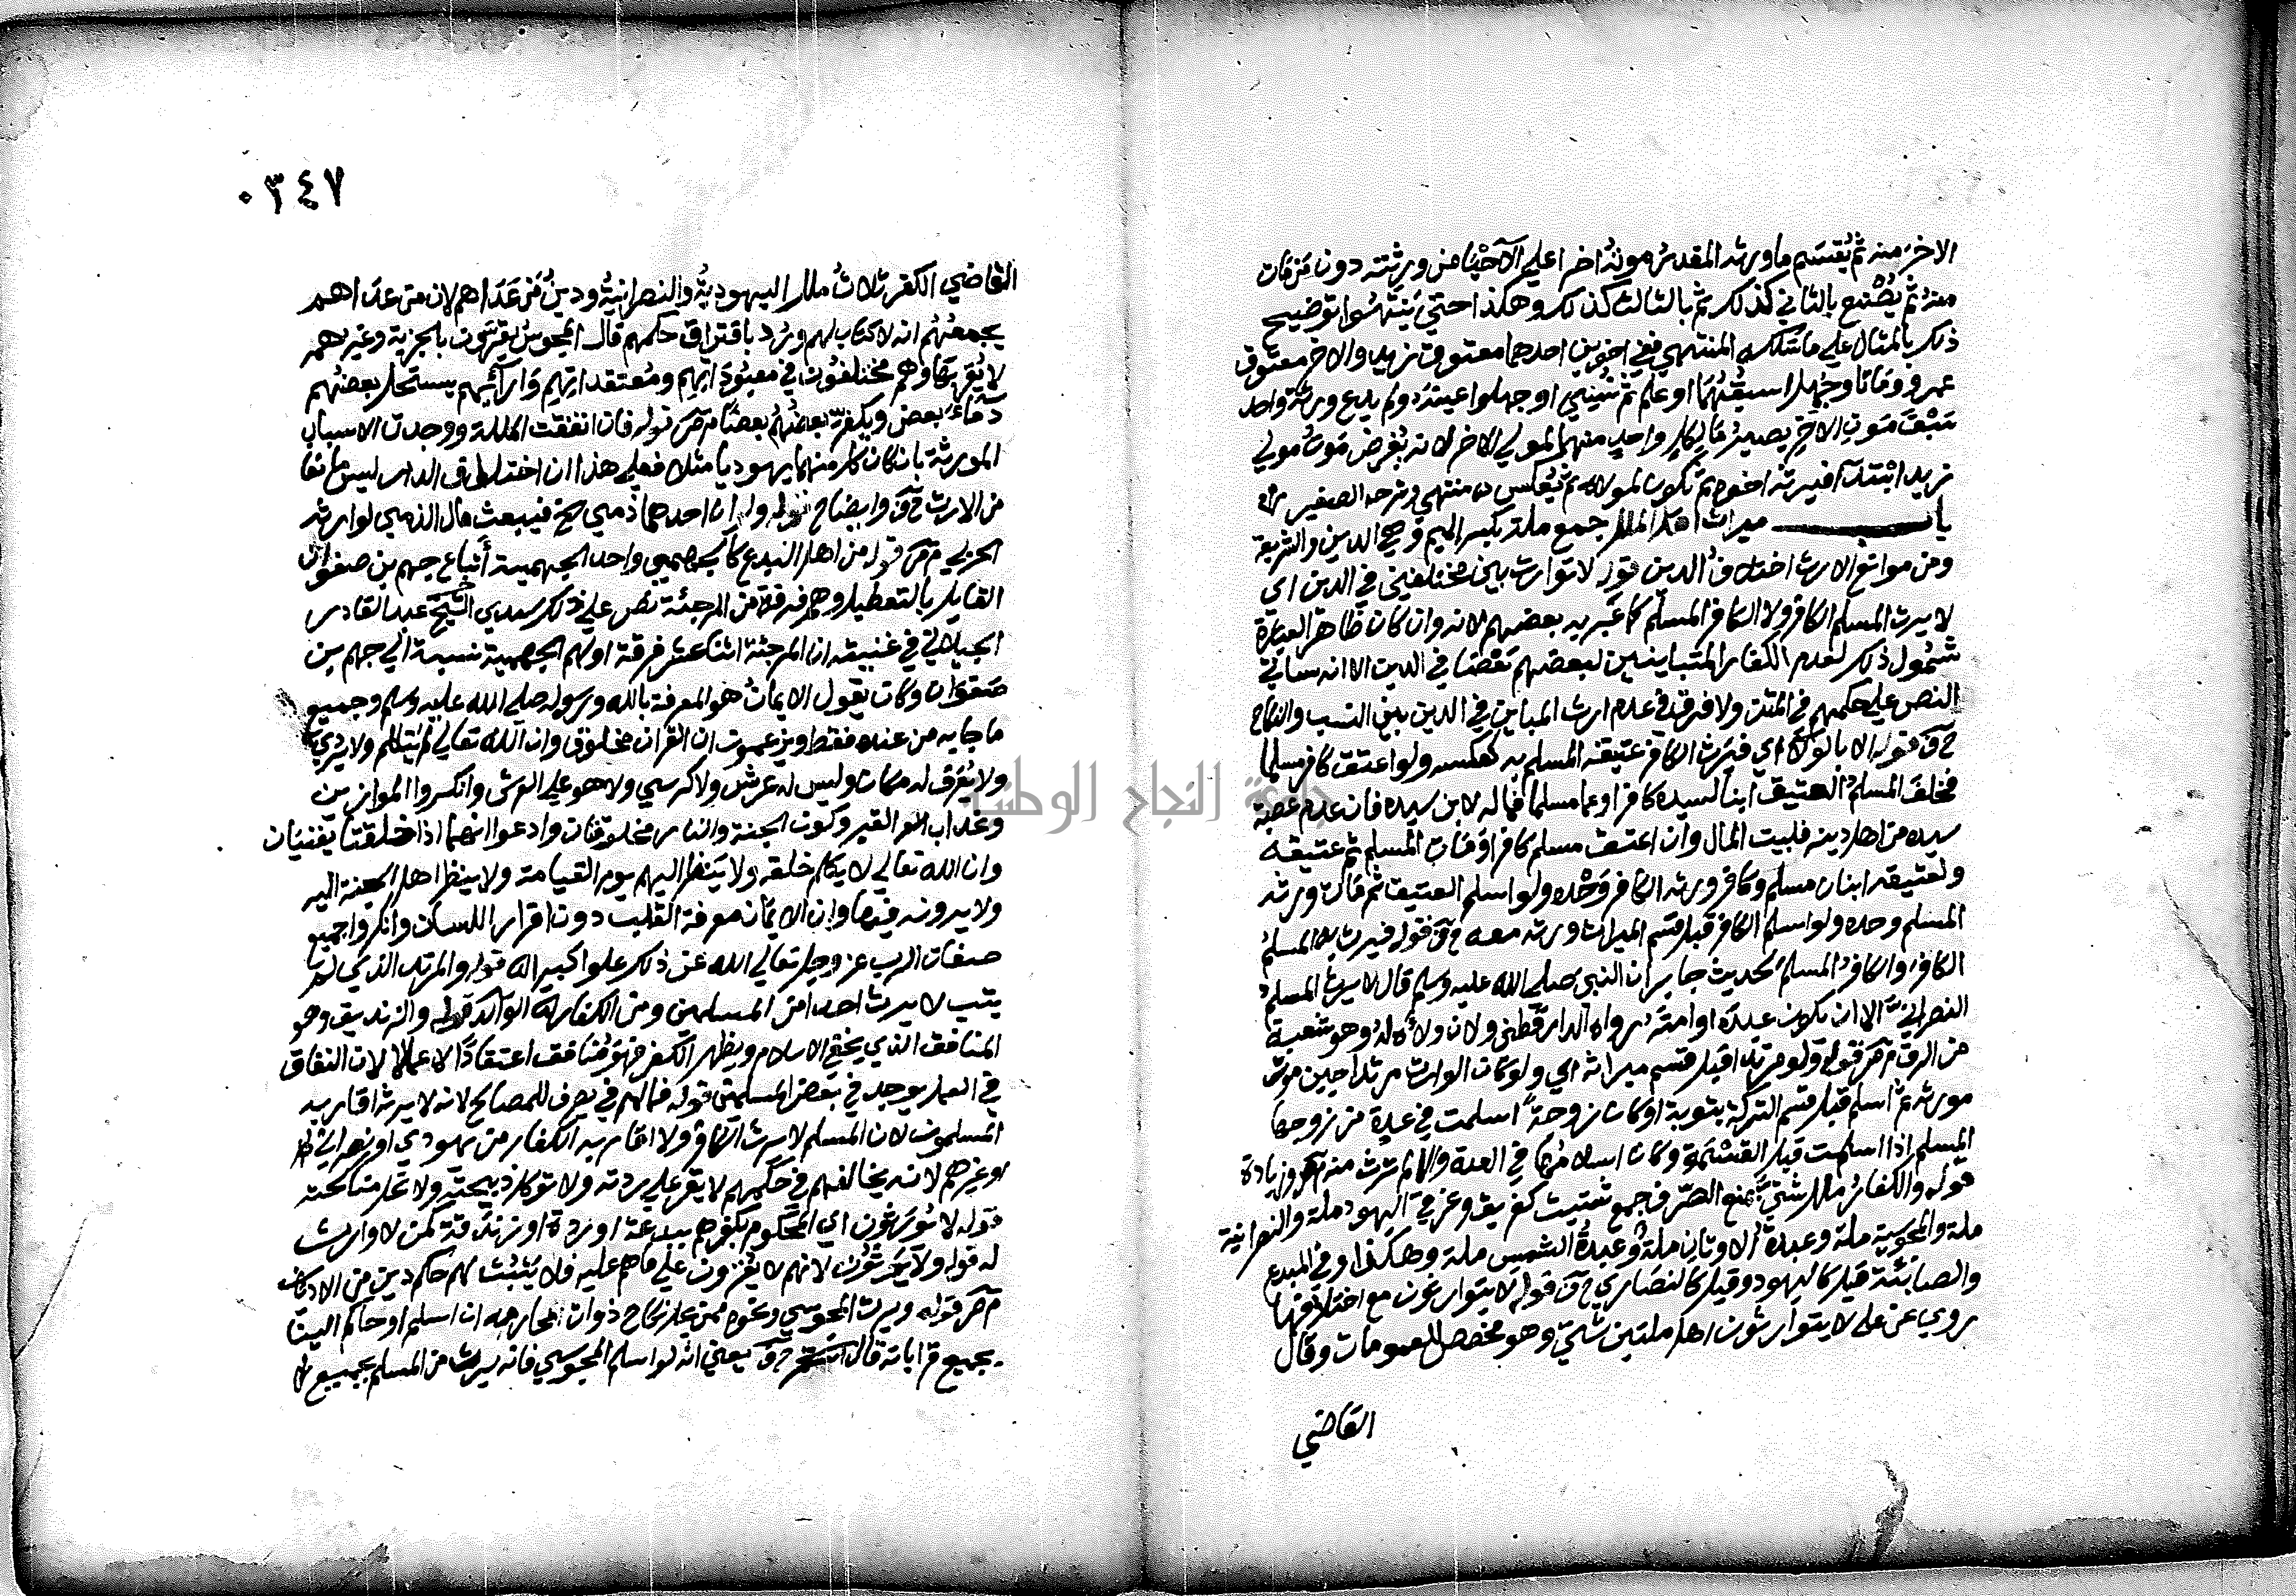 الاخر منه ثم يقسم ما ورثه المقدر موته اخرا علي الاحيا من ورثته دون من مات
منه ثم يصنع بالثاني كذلك ثم بالثالث كذلك وهكذا حتي ينتهوا توضيح
ذلك بالمثال علي ما سلكه المنتهي ففي اخوين احدهما معتوق زيد والاخر معتوق
عمرو وماتا وجهل اسبقهما او علم ثم نسي او جهلوا عينه ولم يدع ورثة واحد
سبق موت الاخر يصير مال كل واحد منهما لمولي الاخر لانه يفرض موت مولي
زيد ابتدآ فيرثه اخوه ثم يكون لمولاه ثم يعكس منتهي وشرحه الصغير
باب ميراث اهل الملل جمع ملة بكسر الميم وهي الدين والشريعة
ومن موانع الارث اختلاف الدين قوله لا توارث بين مختلفين في الدين اي
لا يرث المسلم الكافر ولا الكافر المسلم كما عبر به بعضهم لانه وان كان ظاهر العبارة
شمول ذلك لعدم الكفار المتباينين لبعضهم بعضا في الدين الا انه سياتي
النص علي حكمهم في المتن ولا فرق في عدم ارث المباين في الدين بين النسب والنكاح
ح ق قوله الا بالولاء اي فيرث الكافر عتيقه المسلم به كعكسه ولو اعتق كافر مسلما
فخلف المسلم العتيق ابنا لسيده كافرا وعما مسلما فماله لابن سيده فان عدم عصبة
سيده من اهل دينه فلبيت المال وان اعتق مسلم كافرا ومات المسلم ثم عتيقه
ولعتيقه ابنان مسلم وكافر ورثه الكافر وحده ولو اسلم العتيق ثم مات ورثه
المسلم وحده ولو اسلم الكافر قبل قسم الميراث ورثه معه ح ق قوله فيرث به المسلم
الكافر والكافر المسلم لحديث جابر ان النبي صلي الله عليه وسلم قال لا يرث المسلم
النصراني الا ان يكون عبده او امته رواه الدارقطني ولان ولاءه له وهو شعبة
من الرق م ص قوله ولو مرتدا قبل قسم ميراثه اي ولو كان الوارث مرتدا حين موت
مورثه ثم اسلم قبل قسم التركة بتوبة او كانت زوجة اسلمت في عدة من زوجها
المسلم اذا اسلمت قبل القسمة وكان اسلامها في العدة والا لم ترث منه م ص وزيادة
قوله والكفار ملل شتي منع الصرف جمع شتيت كغريق وغرقي اليهود ملة والنصرانية
ملة والمجوسية ملة وعبدة الاوثان ملة وعبدة الشمس ملة وهكذا وفي المبدع
والصابئة قيل كاليهود وقيل كالنصاري ح ق قوله لا يتوارثون مع اختلافها
روي عن علي لا يتوارثون اهل ملتين شتي وهو مخصص للعمومات وقال
القاضي
٠٣٤٧
القاضي الكفر ثلاث ملل اليهودية والنصرانية ودين من عداهم لان من عداهم
يجمعهم انه لا كتاب لهم ورد بافتراق حكمهم قال المجوس يقرون بالجزية وغيرهم
لا يقر بها وهم مختلفون في معبوداتهم ومعتقداتهم وآرائهم يستحل بعضهم
دماء بعض ويكفر بعضهم بعضا م ص قوله فان اتفقت الملة ووجدت الاسباب
المورثة بان كان كل منهما يهوديا مثلا فعلي هذا ان اختلاف الدار ليس مانعا
من الارث ح ق وايضاح قوله ولو ان احدهما ذمي فيبعث مال الذمي لوارثه
الحربي م ص قوله من اهل البدع كالجهمي واحد الجهمية أتباع جهم بن صفوان
القايل بالتعطيل وهم فرقة من المرجئة نص علي ذلك سيدي الشيخ عبد القادر
الجيلاني في غنيته ان المرجئة اثنا عشر فرقة اولهم الجهمية نسبة الي جهم بن
صفوان وكان يقول الايمان هو المعرفة بالله ورسوله صلي الله عليه وسلم وجميع
ما جا به من عنده فقط ويزعمون ان القرآن مخلوق وان الله تعالي لم يتكلم ولا يري
ولا يعرف له مكان وليس له عرش ولا كرسي ولا هو علي العرش وانكروا الموازين
وعذاب القبر وكون الجنة والنار مخلوقتان وادعوا انهما اذا خلقتا يفنيان
وان الله تعالي لا يكلم خلقه ولا ينظر اليهم يوم القيامة ولا ينظر اهل الجنة اليه
ولا يرونه فيها وان الايمان معرفة القلب دون اقرار اللسان وانكروا جميع
صفات الرب عز وجل تعالي الله عن ذلك علوا كبيرا قوله والمرتد الذي لم
يتب لا يرث احدا من المسلمين ومن الكفار قوله والزنديق وهو
المنافق الذي يخفي الاسلام ويظهر الكفر فهو منافق اعتقادا لا عملا لان النفاق
في العمل يوجد في بعض المسلمين قوله فمالهم في يصرف للمصالح لانه لا يرثه اقاربه
المسلمون لان المسلم لا يرث الكافر ولا اقاربه الكفار من يهودي او نصراني
او غيرهم لانه يخالفهم في حكمهم لا يقر علي ردته ولا توكل ذبيحته ولا تحل مناكحته
قوله لا يورثون اي المحكوم بكفرهم ببدعة او ردة او زندقة كمن لا وارث
له قوله ولا يرثون لانهم لا يقرون علي ما هم عليه فلا يثبت لهم حكم دين من الاديان
م ص قوله ويرث المجوسي ونحوه ممن يحل نكاح ذوات المحارم ان اسلم او حاكم الينا
بجميع قراباته قال ح ق يعني انه لو اسلم المجوسي فانه يرث من المسلم بجميع
جامعة النجاح الوطنية